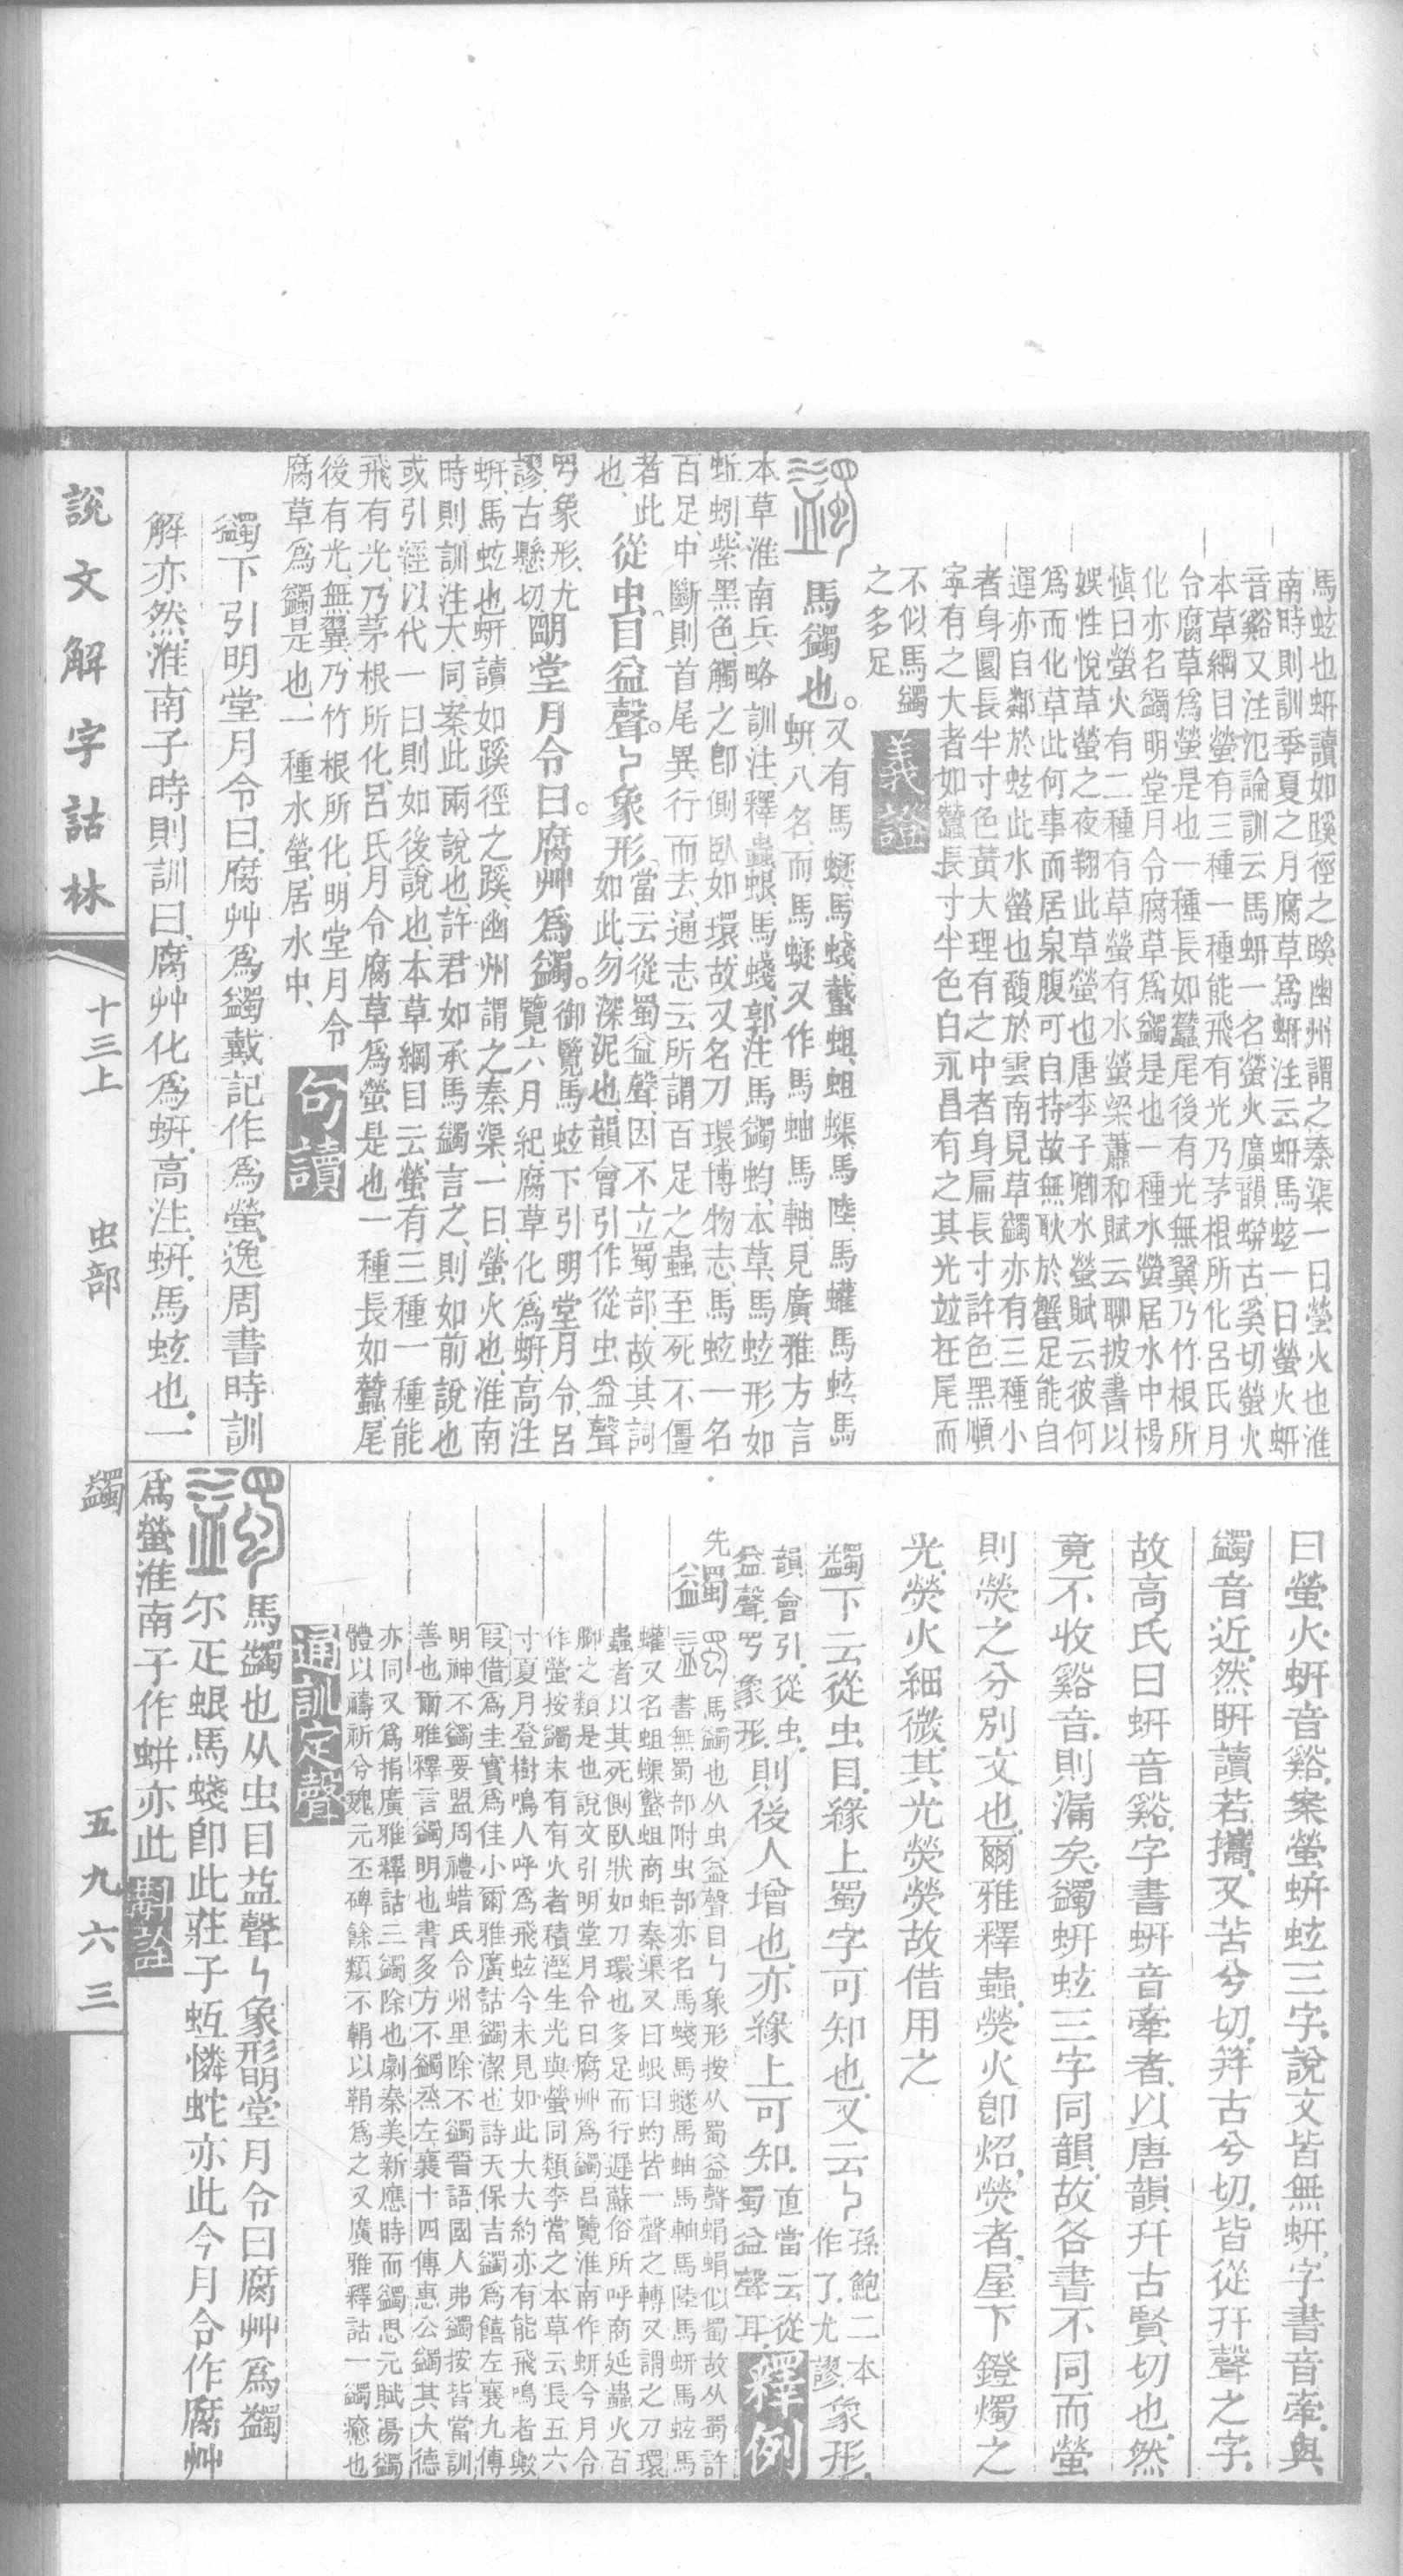 馬蚿也蚈讀如蹊徑之蹊幽州謂之秦渠一曰螢火也淮
南時則訓季夏之月腐草爲蚈注云蚈馬蚿一曰螢火蚈
音谿又注氾論訓云馬蚈一名螢火廣韻蠸古奚切螢火
本草綱目螢有三種一種能飛有光乃茅根所化呂氏月
令腐草爲螢是也一種長如蠶尾後有光無翼乃竹根所
化亦名蠲明堂月令腐草爲蠲是也一種水螢居水中楊
愼曰螢火有二種有草螢有水螢梁蕭和賦云聊披書以
娛性悅草螢之夜翔此草螢也唐李子卿水螢賦云彼何
爲而化草此何事而居泉腹可自持故無耿於蟹足能自
運亦自鄰於蚿此水螢也馥於雲南見草蠲亦有三種小
者身圓長半寸色黃大理有之中者身扁長寸許色黑順
寧有之大者如蠶長寸半色白永昌有之其光竝在尾而
不似馬蠲
之多足
義證
馬蠲也。又有馬蜒、馬蝬、蟿蛆、蛆蟝、馬陸、馬蠸、馬蚿、馬
蚈、八名、而馬蜒又作馬蚰馬軸、見廣雅方言
本草淮南兵略訓注、釋蟲蛝、馬蝬、郭注馬蠲蚐、本草、馬蚿形如
蚯蚓、紫黑色、觸之卽側臥如環、故又名刀環、博物志、馬蚿一名
百足、中斷則首尾異行而去、通志云所謂百足之蟲至死不僵
者此
也、從虫。目益聲。𠃑象形。當云從蜀益聲、因不立蜀部、故其詞
如此、勿深泥也、韻會引作從虫益聲
罒象形、尤
謬、古懸切明堂月令曰。腐艸爲蠲。御覽馬蚿下引明堂月令、呂
覽六月紀腐草化爲蚈、高注
蚈、馬蚿也、蚈讀如蹊徑之蹊、幽州謂之秦渠、一曰、螢火也、淮南
時則訓注大同、案此兩說也、許君如承馬蠲言之、則如前說也
或引經以代一曰、則如後說也、本草綱目云螢有三種、一種能
飛有光、乃茅根所化、呂氏月令腐草爲螢是也、一種長如蠶尾
後有光、無翼、乃竹根所化、明堂月令
腐草爲蠲是也、一種水螢、居水中、
句讀
蠲下引明堂月令曰、腐艸爲蠲、戴記作爲螢、逸周書時訓
解亦然、淮南子時則訓曰、腐艸化爲蚈、高注、蚈、馬蚿也、一
曰螢火、蚈音谿、案螢蚈蚿三字、說文皆無蚈、字書音牽、與
蠲音近、然䀘讀若攜、又苦兮切、筓古兮切、皆從幵聲之字、
故高氏曰蚈音谿、字書蚈音牽者、以唐韻幵古賢切也、然
竟不收谿音、則漏矣、蠲蚈蚿三字同韻、故各書不同、而螢
則熒之分別文也、爾雅釋蟲、熒火卽炤、熒者、屋下鐙燭之
光、熒火細微、其光熒熒、故借用之
蠲下云從虫目、緣上蜀字可知也、又云𠃑孫鮑二本
作了尤謬象形、
韻會引、從虫、
益聲、罒象形、則後人增也、亦緣上可知、直當云從
蜀益聲耳、
釋例
先蠲馬蠲也从虫益聲目𠃌象形按从蜀益聲蜎蜎似蜀故从蜀許
書無蜀部附虫部亦名馬蝬馬蠽馬蚰馬軸馬陸馬蚈馬蚿馬
蠸又名蛆蟝蟿蛆商蚷秦渠又曰蛝曰蚐皆一聲之轉又謂之刀環
蟲者以其死側臥狀如刀環也多足而行遲蘇俗所呼商延蟲火百
腳之類是也說文引明堂月令曰腐艸爲蠲呂覽淮南作蚈今月令
作螢按蠲末有有火者積溼生光與螢同類李當之本草云長五六
寸夏月登樹鳴人呼爲飛蚿今未見如此大大約亦有能飛鳴者歟
叚借爲圭實爲佳小爾雅廣詁蠲潔也詩天保吉蠲爲饎左襄九傳
明神不蠲要盟周禮蜡氏令州里除不蠲晉語國人弗蠲按皆當訓
善也爾雅釋言蠲明也書多方不蠲烝左襄十四傳惠公蠲其大德
亦同又爲捐廣雅釋詁三蠲除也劇秦美新應時而蠲思元賦湯蠲
體以禱祈兮魏元丕碑餘類不輯以鞙爲之又廣雅釋詁一蠲癒也
通訓定聲
馬蠲也从虫目益聲𠃌象形明堂月令曰腐艸爲蠲
尔疋蛝馬蝬卽此莊子蚿憐蛇亦此今月令作腐艸
爲螢淮南子作蚈亦此
斠詮
說文解字詁林
十三上
虫部
蠲
五九六三